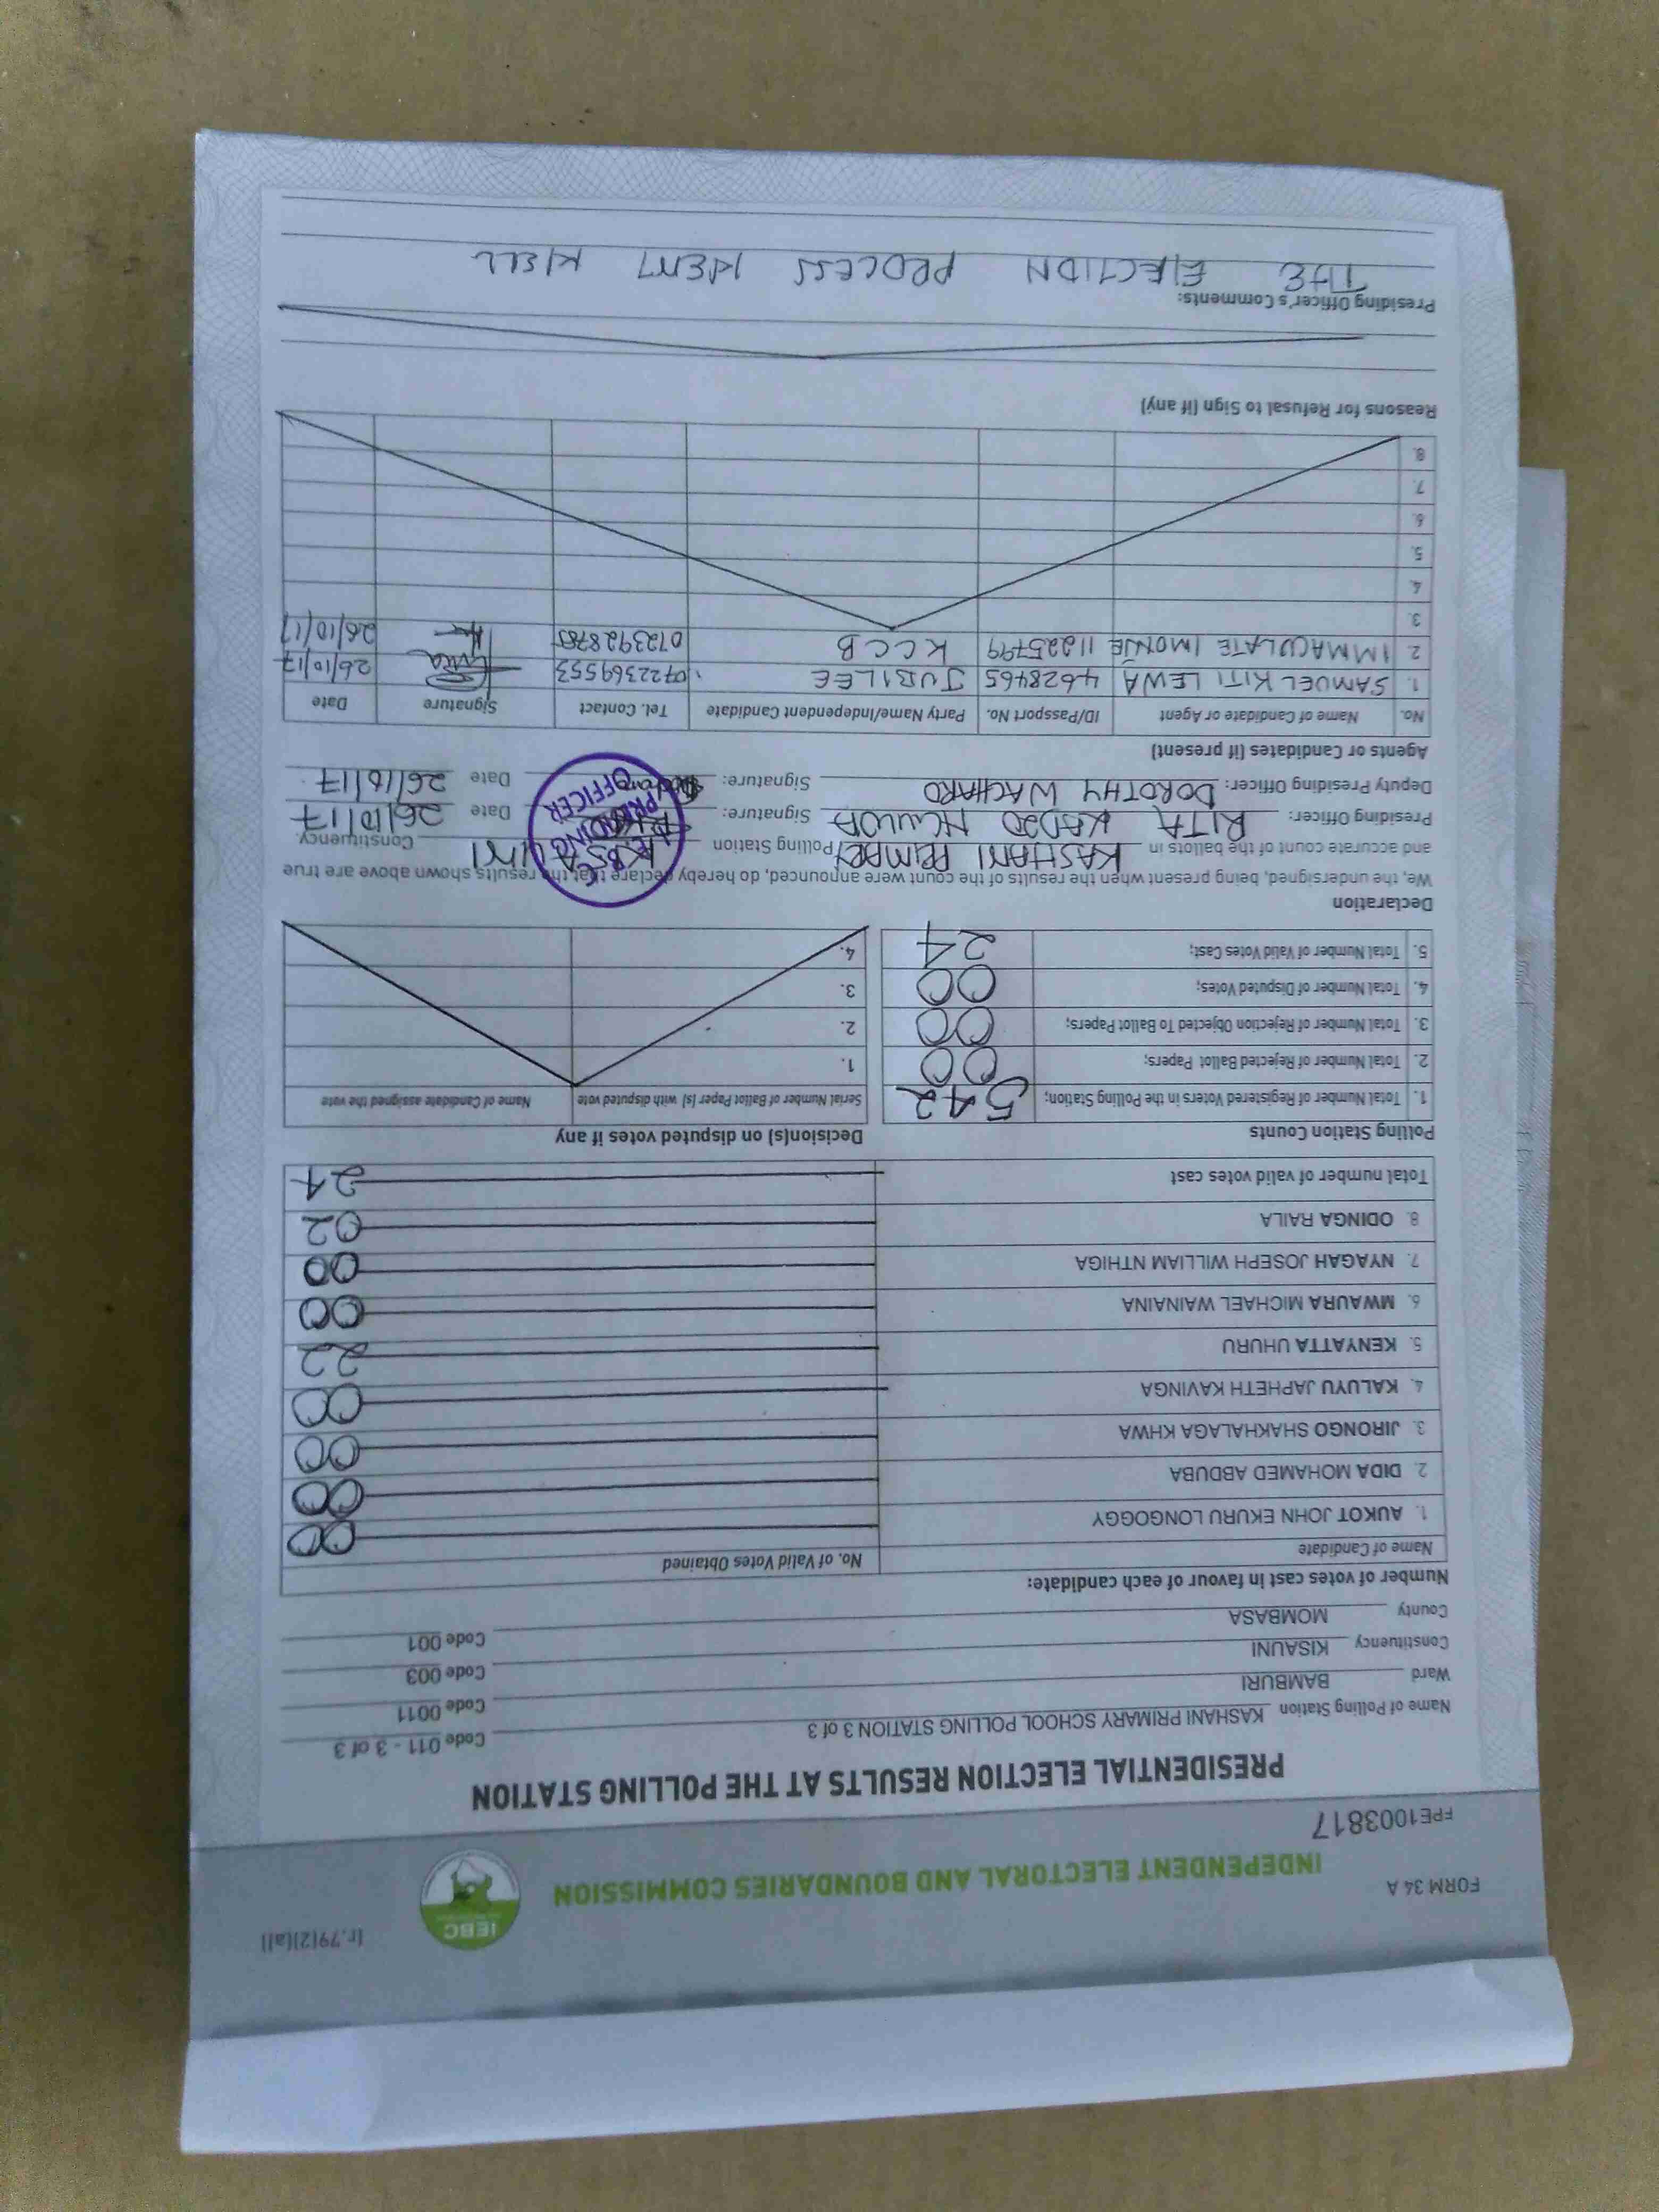 FORM 34 A
(r.79(2)(a))
INDEPENDENT ELECTORAL AND BOUNDARIES COMMISSION
IEBC
FPE1003817
PRESIDENTIAL ELECTION RESULTS AT THE POLLING STATION
Name of Polling Station KASHANI PRIMARY SCHOOL POLLING STATION 3 of 3 Code 011 - 3 of 3
Ward BAMBURI Code 0011
Constituency KISAUNI Code 003
County MOMBASA Code 001
Number of votes cast in favour of each candidate:
Name of Candidate No. of Valid Votes Obtained
1. AUKOT JOHN EKURU LONGOGGY 00
2. DIDA MOHAMED ABDUBA 00
3. JIRONGO SHAKHALAGA KHWA 00
4. KALUYU JAPHETH KAVINGA 00
5. KENYATTA UHURU 22
6. MWAURA MICHAEL WAINAINA 00
7. NYAGAH JOSEPH WILLIAM NTHIGA 00
8. ODINGA RAILA 02
Total number of valid votes cast 24
Polling Station Counts
1. Total Number of Registered Voters in the Polling Station; 542
2. Total Number of Rejected Ballot Papers; 00
3. Total Number of Rejection Objected To Ballot Papers; 00
4. Total Number of Disputed Votes; 00
5. Total Number of Valid Votes Cast; 24
Decision(s) on disputed votes if any
Serial Number of Ballot Paper (s) with disputed vote Name of Candidate assigned the vote
1.
2.
3.
4.
Declaration
We, the undersigned, being present when the results of the count were announced, do hereby declare that the results shown above are true
and accurate count of the ballots in KASHANI PRIMARY Polling Station KISAUNI Constituency.
Presiding Officer: RITA KADZO Signature: Date 26/10/17
Deputy Presiding Officer: DOROTHY WACHARO Signature: Date 26/10/17
PRESIDING OFFICER
Agents or Candidates (if present)
No. Name of Candidate or Agent ID/Passport No. Party Name/Independent Candidate Tel. Contact Signature Date
1. SAMUEL KITI LEWA 4628465 JUBILEE 0722369553 26/10/17
2. IMMACULATE IMONJE 11225799 KCCB 26/10/17
3.
4.
5.
6.
7.
8.
Reasons for Refusal to Sign (if any)
Presiding Officer's Comments:
THE ELECTION PROCESS WENT WELL